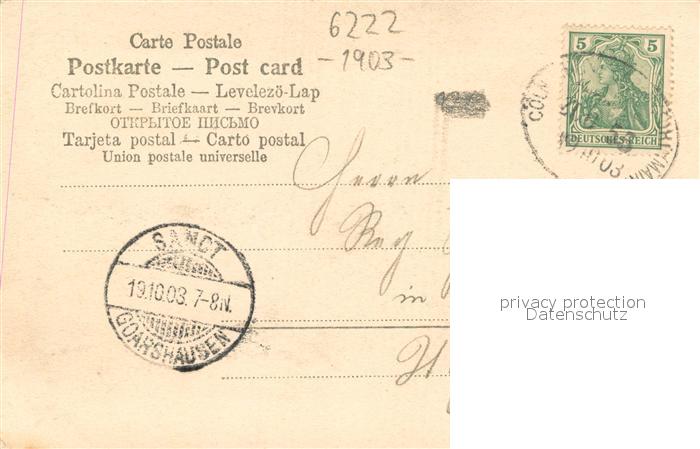 6222
-1903-
Carte Postale
Postkarte — Post card
Cartolina Postale — Levelezö-Lap
Brefkort — Briefkaart — Brevkort
ОТКРЫТОЕ ПИСЬМО
Tarjeta postal — Cartó postal
Union postale universelle
5 5
DEUTSCHES REICH
Herrn
in
SANCT
19.10.03. 7-8N.
GOARSHAUSEN
privacy protection
Datenschutz